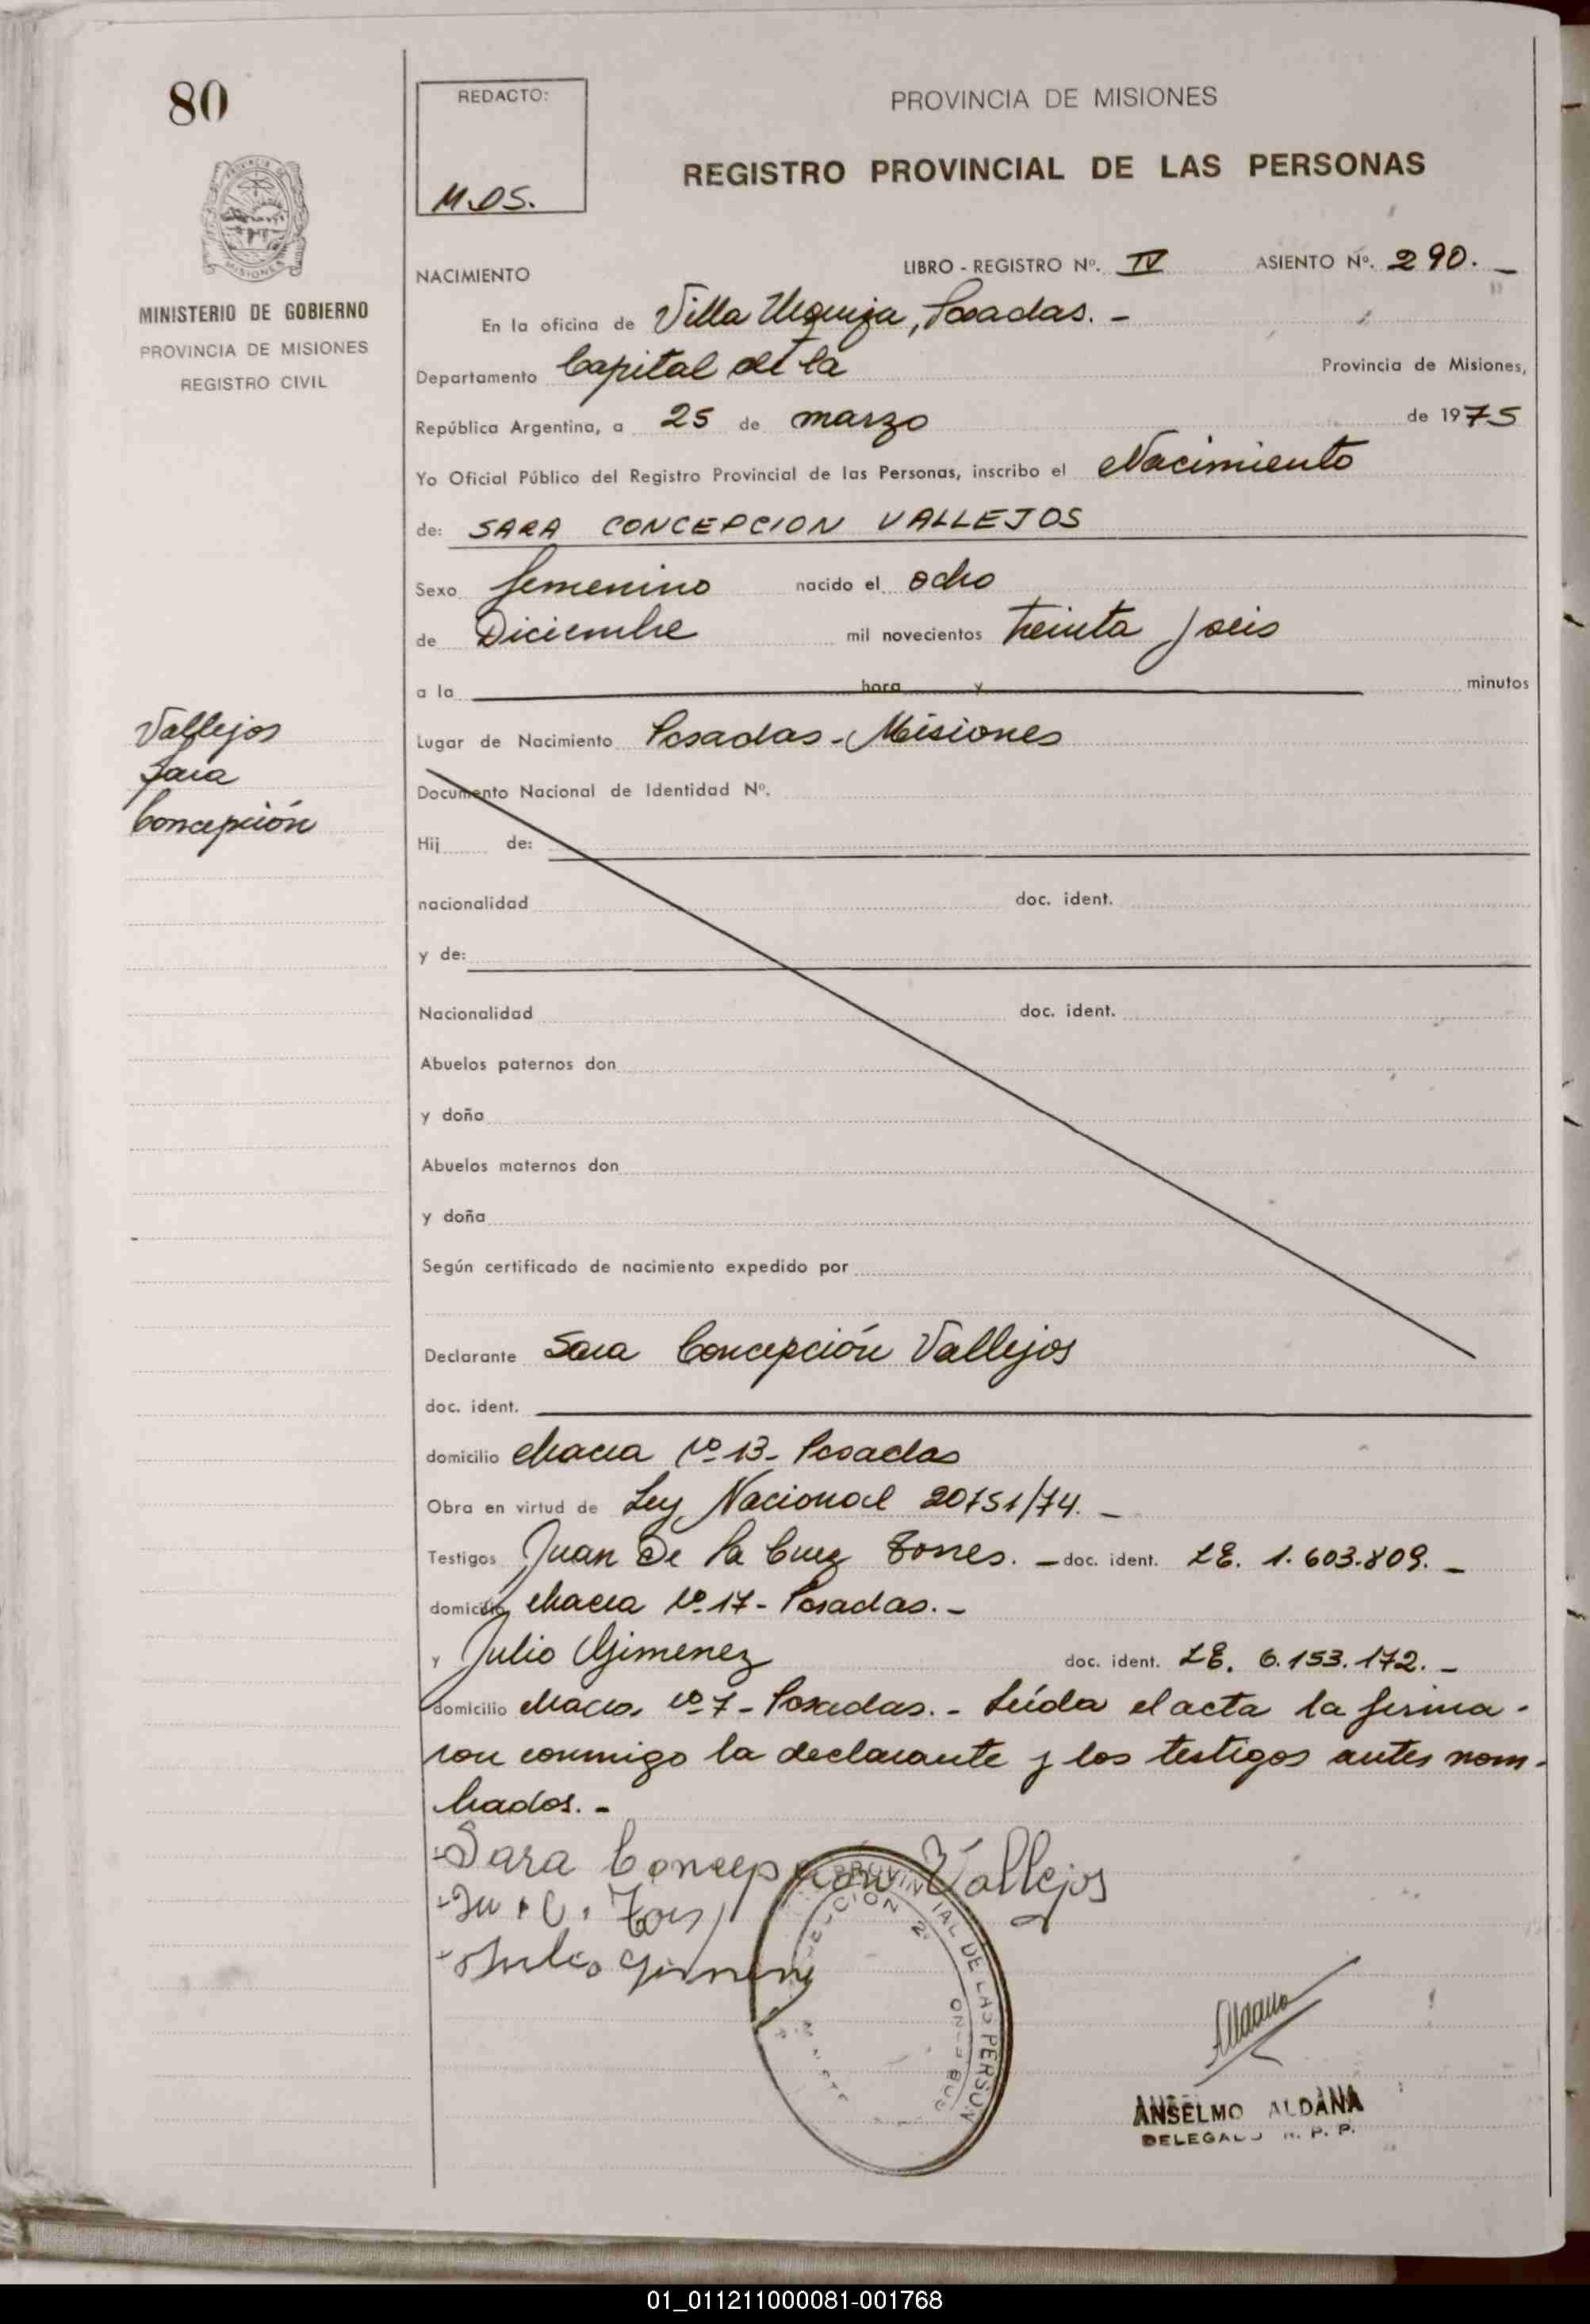 80
REDACTO:
M.DS.
PROVINCIA DE MISIONES
REGISTRO PROVINCIAL DE LAS PERSONAS
MISIONES
MINISTERIO DE GOBIERNO
PROVINCIA DE MISIONES
REGISTRO CIVIL
NACIMIENTO LIBRO - REGISTRO Nº. IV ASIENTO Nº. 290. -
En la oficina de Villa Urquiza, Posadas. -
Departamento Capital de la Provincia de Misiones,
República Argentina, a 25 de marzo de 1975
Yo Oficial Público del Registro Provincial de las Personas, inscribo el Nacimiento
de: SARA CONCEPCION VALLEJOS
Sexo femenino nacido el ocho
de Diciembre mil novecientos treinta y seis
a la hora y minutos
Vallejos
Sara
Concepción
Lugar de Nacimiento Posadas - Misiones
Documento Nacional de Identidad Nº.
Hij de:
nacionalidad doc. ident.
y de:
Nacionalidad doc. ident.
Abuelos paternos don
y doña
Abuelos maternos don
y doña
Según certificado de nacimiento expedido por
Declarante Sara Concepción Vallejos
doc. ident.
domicilio Chacra Nº 13 - Posadas
Obra en virtud de Ley Nacional 20751/74. -
Testigos Juan De La Cruz Torres. - doc. ident. LE. 1.603.809. -
domicilio Chacra Nº 17 - Posadas. -
y Julio Gimenez doc. ident. LE. 6.153.172. -
domicilio Chacra Nº 7 - Posadas. - Leída el acta la firma-
ron conmigo la declarante y los testigos antes nom-
brados. -
Sara Concepción Vallejos
Julio Gimenez
PROVINCIAL DE LAS PERSON
Aldana
ANSELMO ALDANA
DELEGADO R. P. P.
01_011211000081-001768